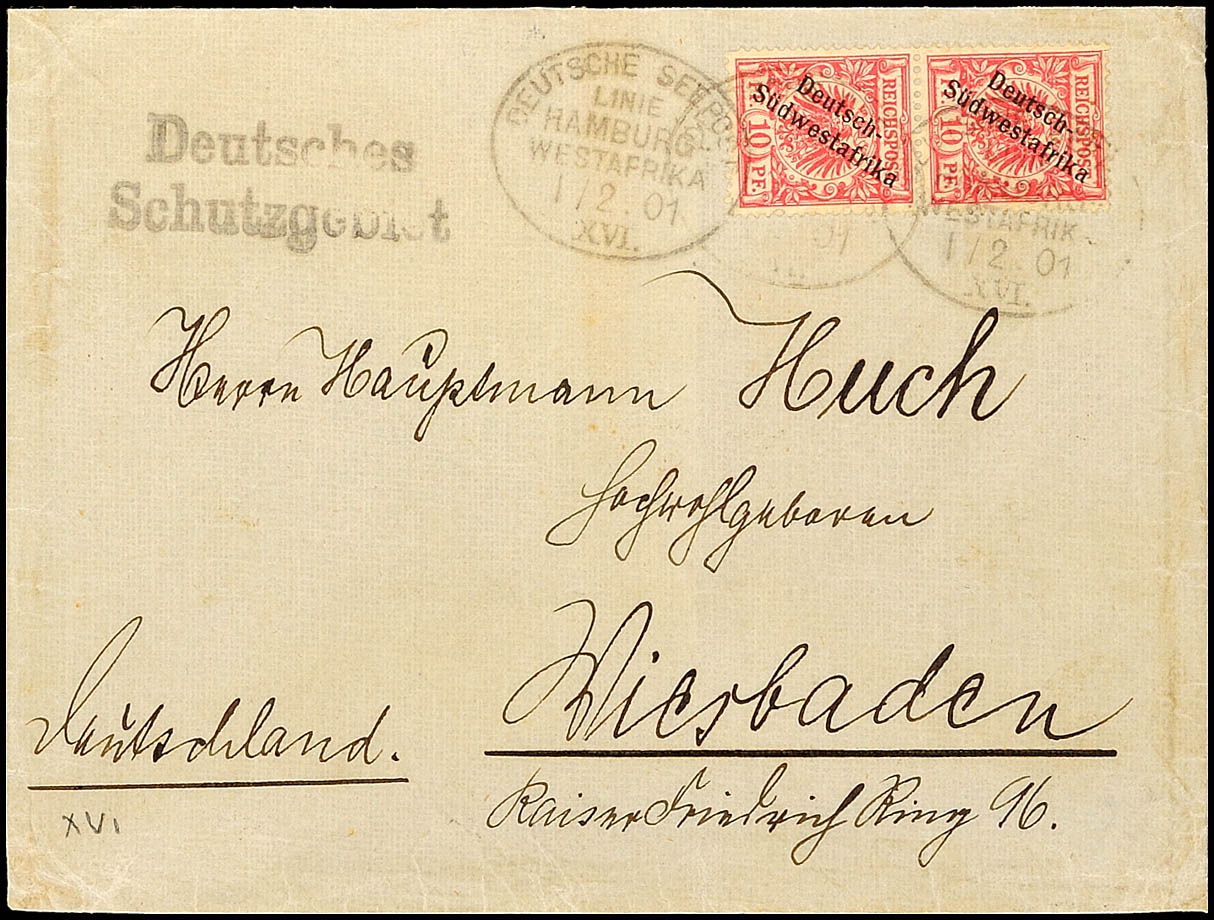 DEUTSCHE SEEPOST
LINIE
HAMBURG
WESTAFRIKA
1/2.01
XVI.
Deutsches
Schutzgebiet
REICHSPOST
10 PF.
Deutsch-
Südwestafrika
REICHSPOST
10 PF.
Deutsch-
Südwestafrika
WESTAFRIK
1/2.01
XVI.
Herrn Hauptmann Huch
Hochwohlgeboren
Wiesbaden
Deutschland.
Kaiser Friedrich Ring 96.
XVI